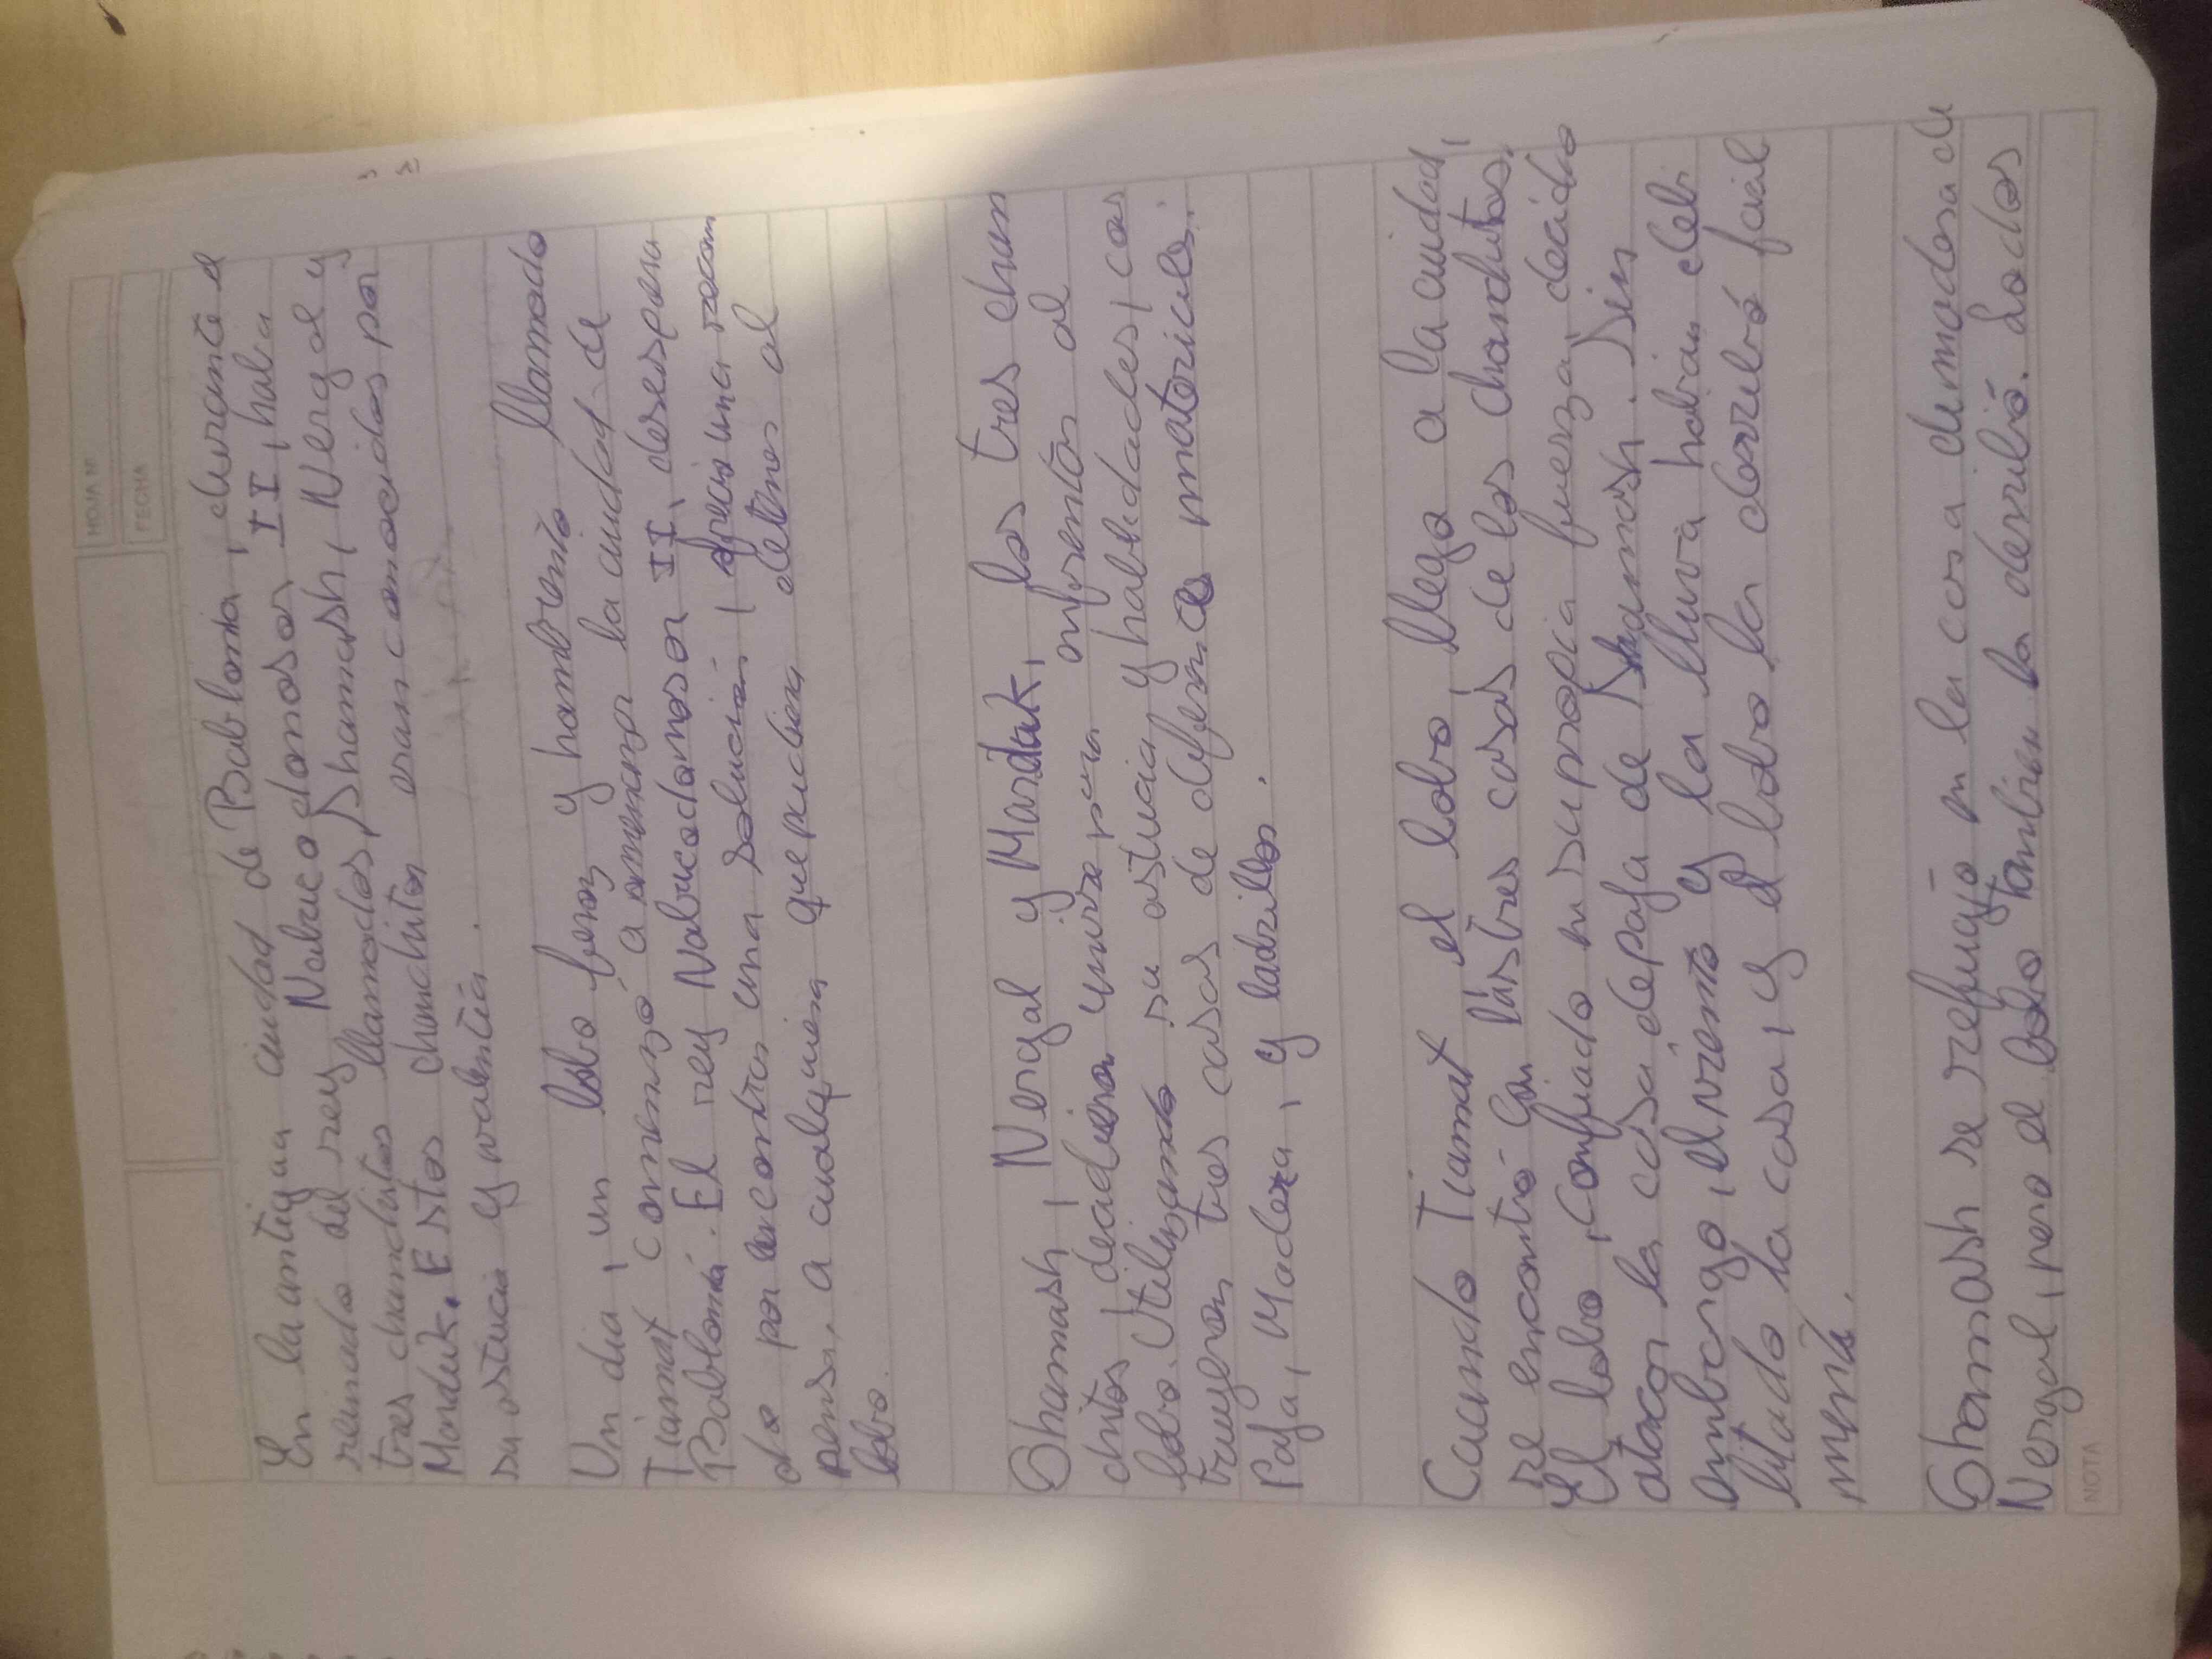 HOJA Nº
FECHA
En la antigua ciudad de Babilonia, durante el
reinado del rey Nabucodonosor II, habia
tres chanchitos llamados Shamash, Nergal y
Marduk. Estos chanchitos eran conocidos por
su astucia y valentia.
Un dia, un lobo feroz y hambriento llamado
Tiamat comenzó a amenazar la ciudad de
Babilonia. El rey Nabucodonosor II, desespera
do por encontrar una solución, ofrecio una recom
pensa a cualquiera que pudiera detener al
lobo.
Shamash, Nergal y Marduk, los tres chan
chitos, decidieron unirse para enfrentar al
lobo. Utilizando su astucia y habilidades, cons
truyeron tres casas de diferentes materiales:
Paja, Madera, y ladrillos.
Cuando Tiamat el lobo, llego a la ciudad,
se encontró con las tres casas de los chanchitos.
El lobo, confiado en su propia fuerza, decidio
atacar la casa de paja de Shamash. Sin
embargo, el viento y la lluvia habian debi
litado la casa, y el lobo la derribó facil
mente.
Shamash se refugió en la casa de madera de
Nergal, pero el lobo tambien la derribó. Los dos
NOTA